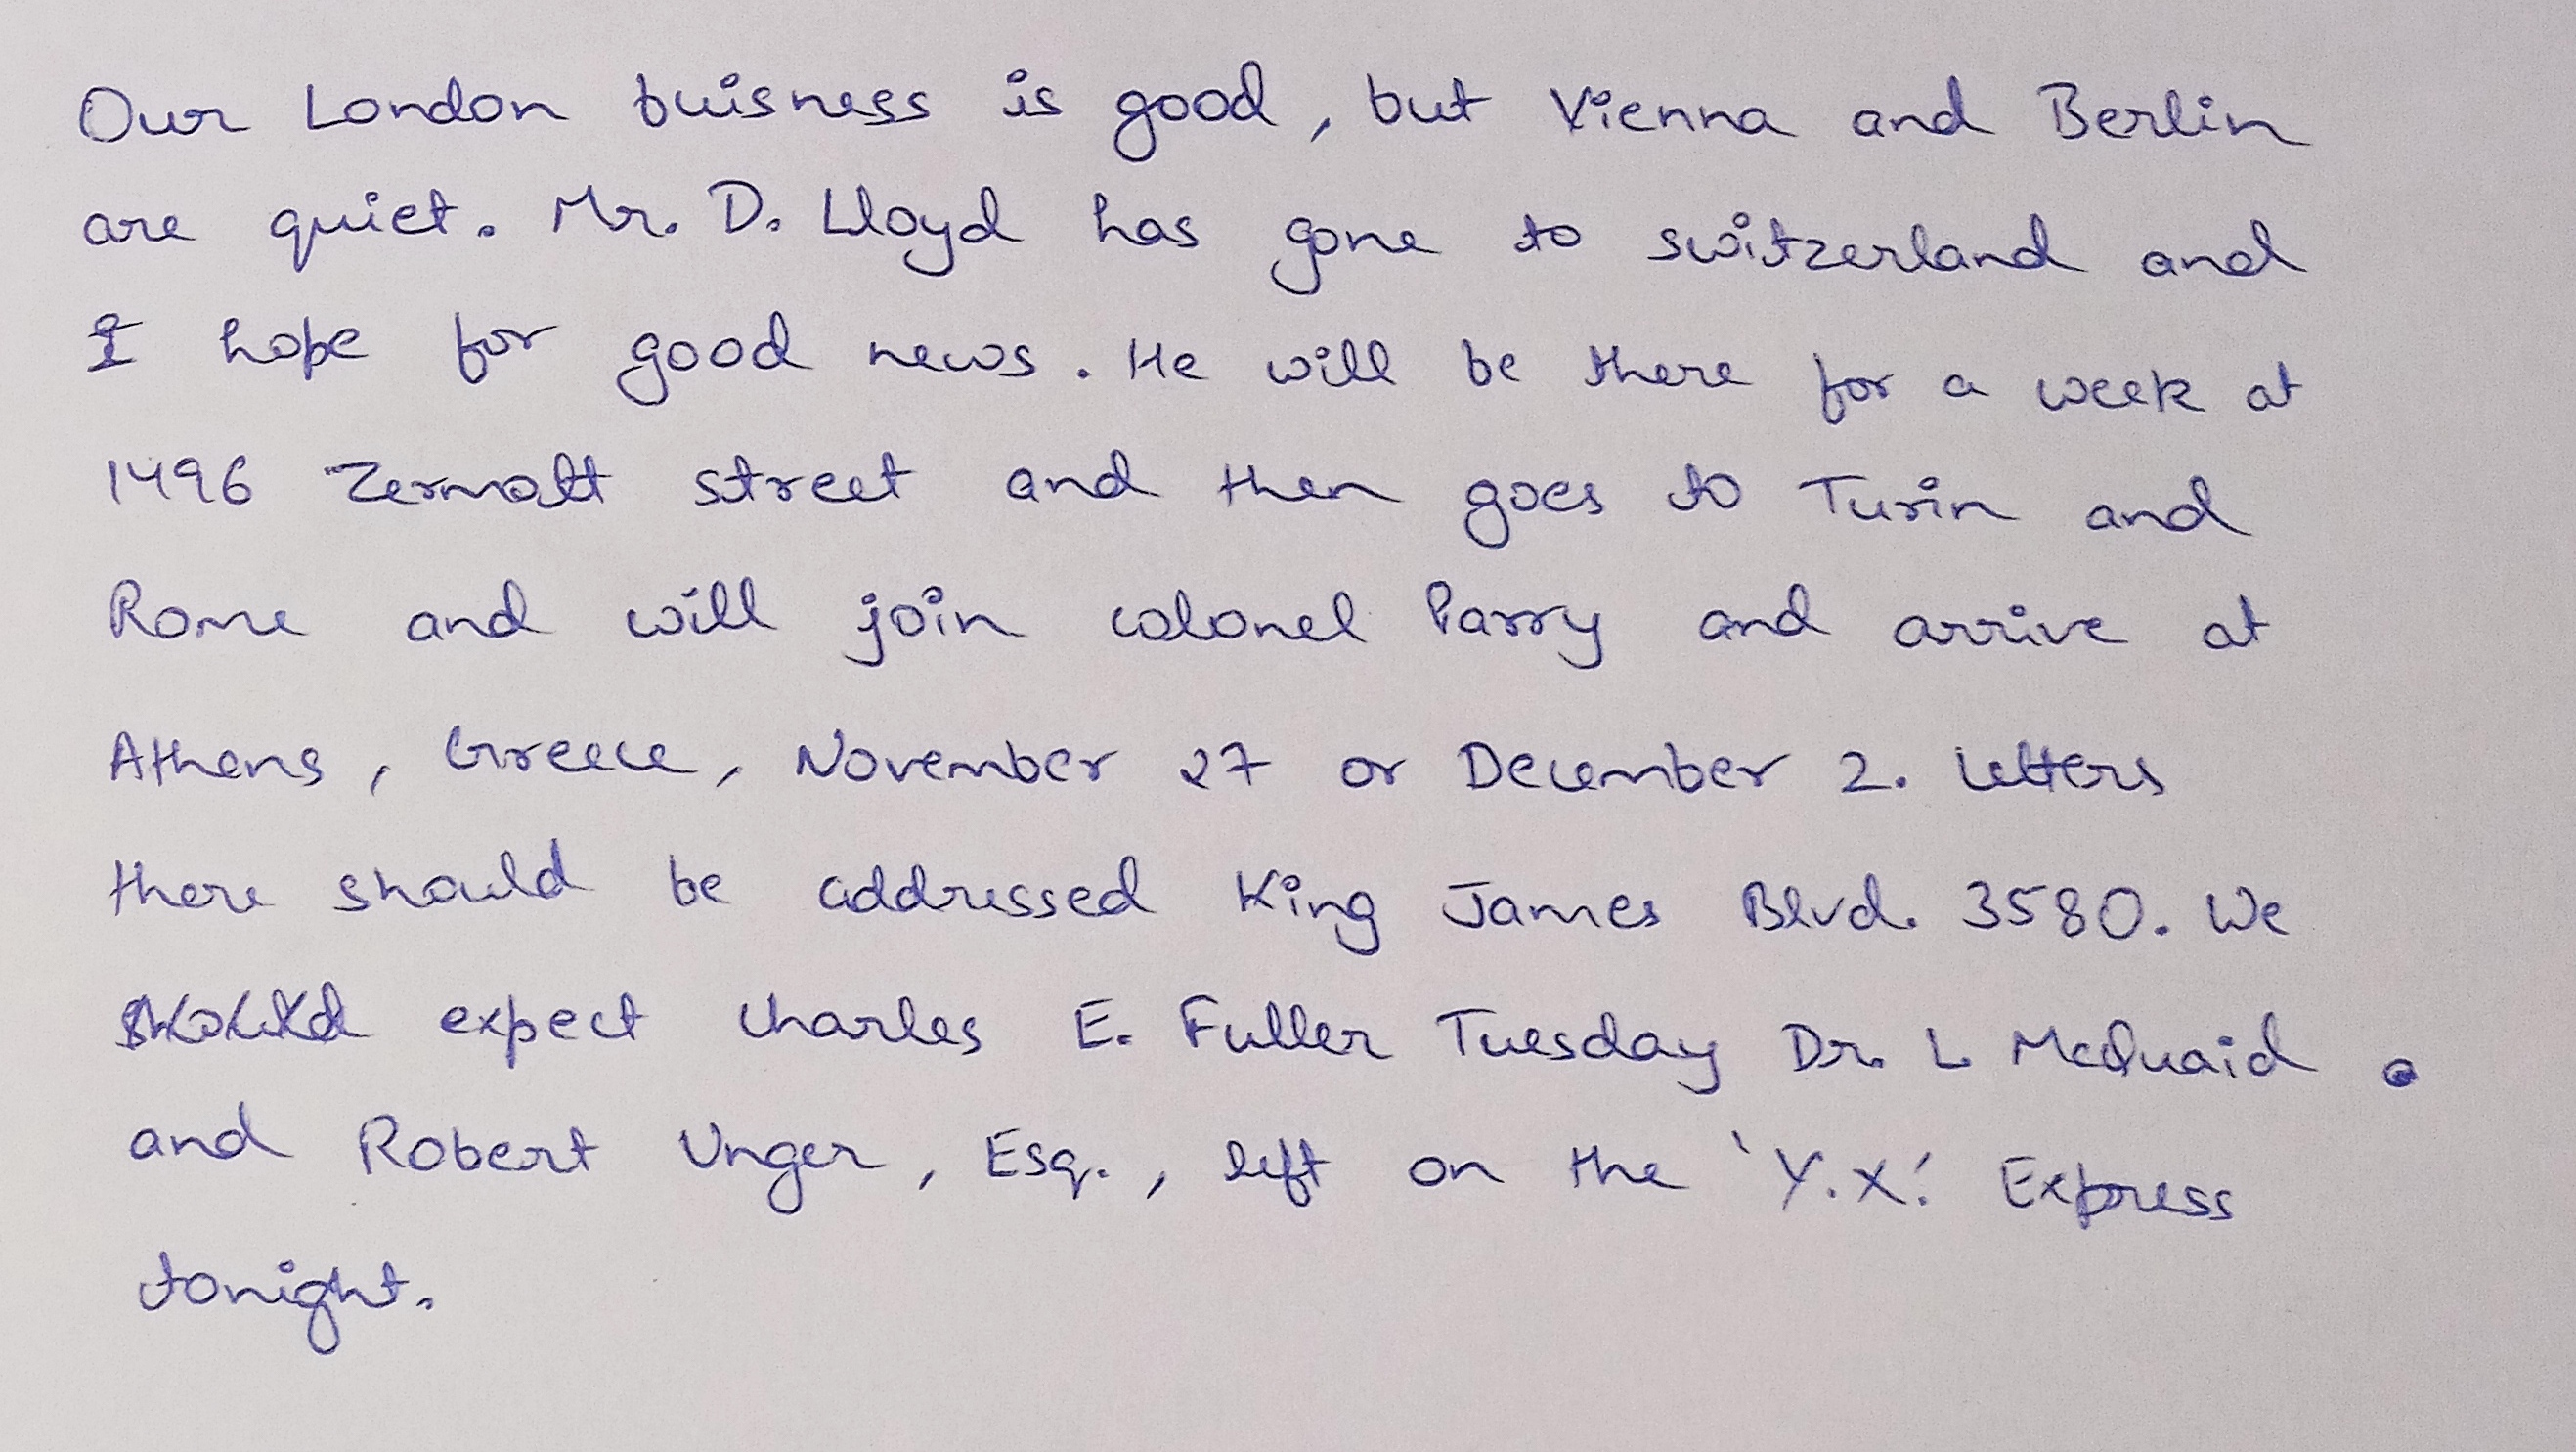 Our London buisness is good, but Vienna and Berlin
are quiet. Mr. D. Lloyd has gone to switzerland and
I hope for good news. He will be there for a week at
1496 Zermatt street and then goes to Turin and
Rome and will join colonel Parry and arrive at
Athens, Greece, November 27 or December 2. Letters
there should be addressed King James Blvd. 3580. We
should expect Charles E. Fuller Tuesday Dr. L McQuaid .
and Robert Unger, Esq., left on the 'Y.X.' Express
tonight.